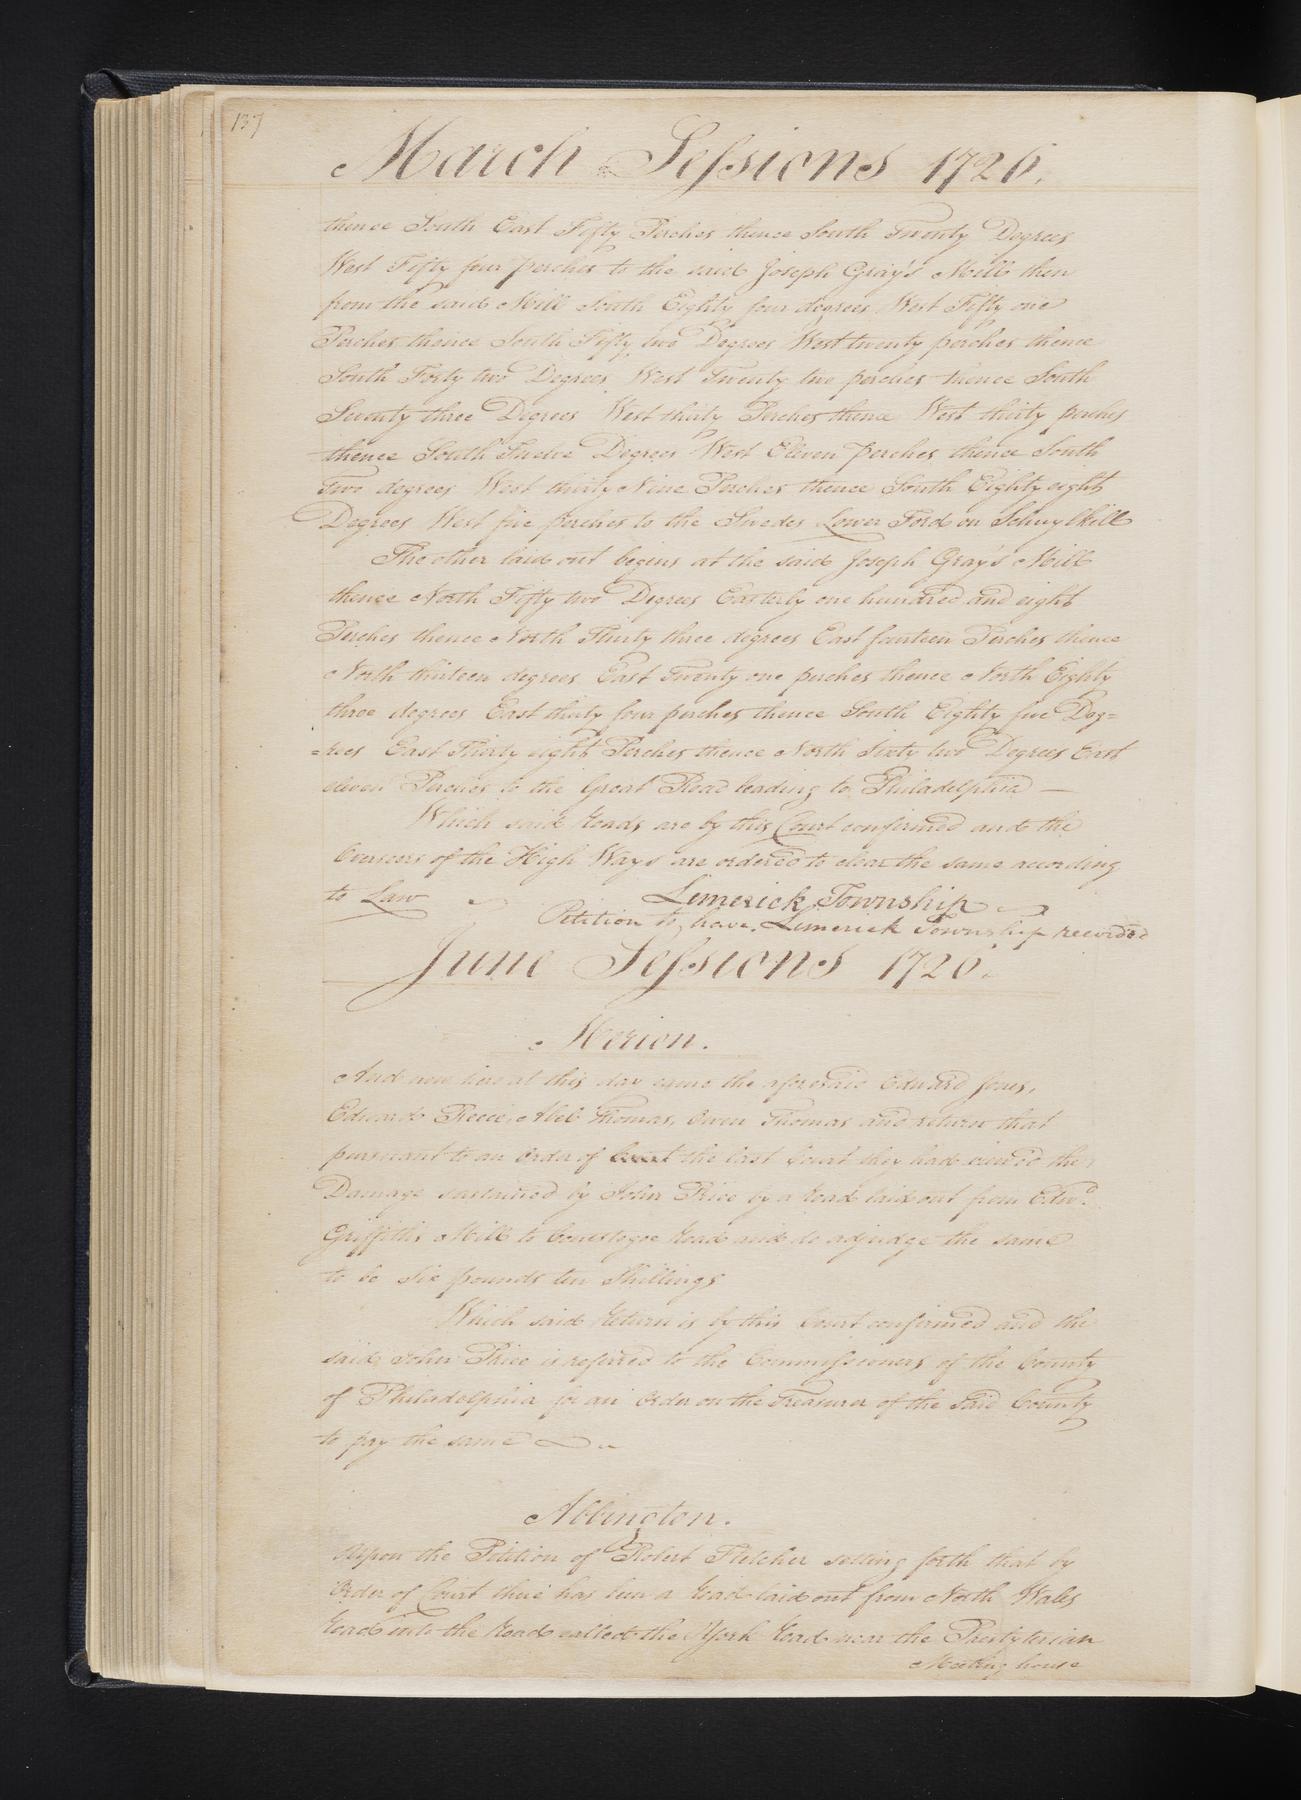 137
March Sessions 1726.
thence South East Fifty Perches thence South Twenty Degrees
West Fifty four perches to the said Joseph Gray's Mill then
from the said Mill South Eighty four degrees West Fifty one
Perches thence South Fifty two Degrees West twenty perches thence
South Forty two Degrees West Twenty two perches thence South
Seventy three Degrees West thirty Perches thence West thirty perches
thence South Twelve Degrees West Eleven perches thence South
Two degrees West thirty Nine Perches thence South Eighty eight
Degrees West five perches to the Swedes Lower Ford on Schuylkill
The other laid out begins at the said Joseph Gray's Mill
thence North Fifty two Degrees Easterly one hundred and eight
Perches thence North Thirty three degrees East fourteen Perches thence
North thirteen degrees East Twenty one perches thence North Eighty
three degrees East thirty four perches thence South Eighty five Deg=
=rees East Thirty eight Perches thence North Sixty two Degrees East
eleven Perches to the Great Road leading to Philadelphia —
Which said Roads are by this Court confirmed and the
Overseers of the High Ways are ordered to clear the same according
to Law
Limerick Township
Petition to have Limerick Township recorded
June Sessions 1726.
Merion.
And now here at this day came the aforesaid Edward Jones,
Edward Reece, Abel Thomas, Owen Thomas and return that
pursuant to an order of the last Court they had viewed the
Damage sustained by John Price by a road laid out from Edwd.
Griffith's Mill to Conestogoe Road and do adjudge the same
to be Six pounds ten Shillings
Which said Return is by this Court confirmed and the
said John Price is referred to the Commissioners of the County
of Philadelphia for an Order on the Treasurer of the said County
to pay the same
Abbington.
Upon the Petition of Robert Fletcher setting forth that by
Order of Court there has been a road laid out from North Wales
Road into the Road called the York Road near the Presbyterian
Meeting house